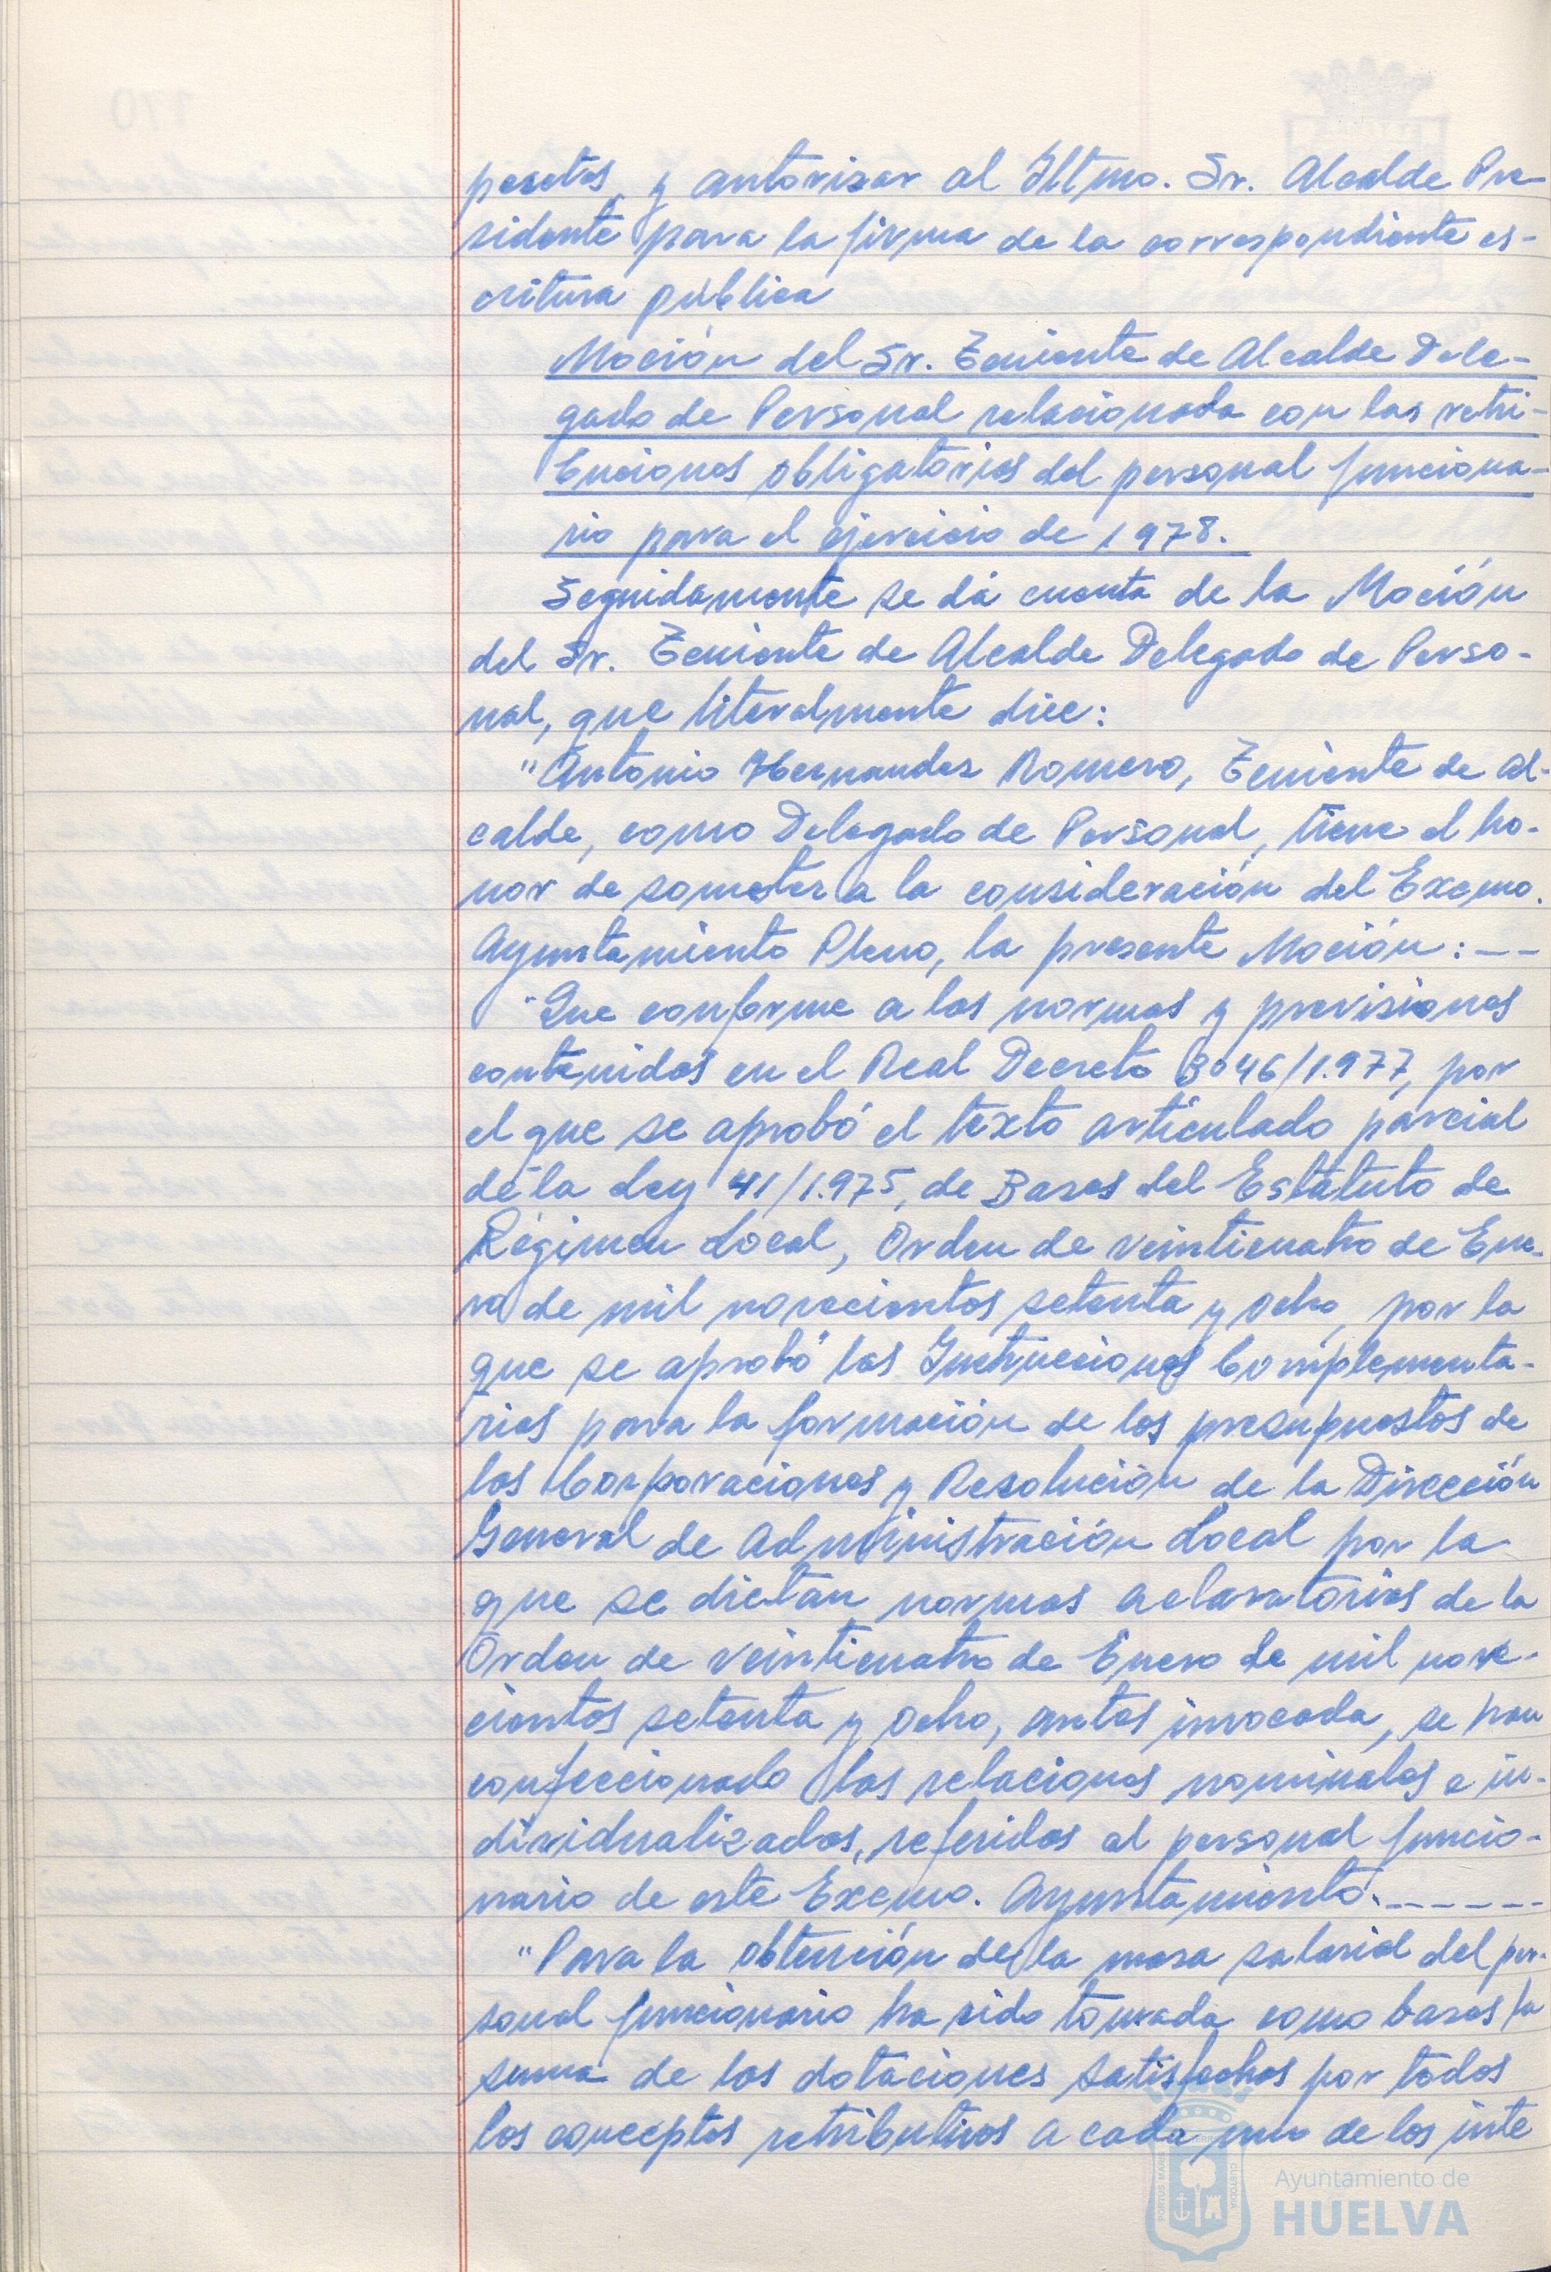 pesetas, y autorizar al Iltmo. Sr. Alcalde Pre-
sidente para la firma de la correspondiente es-
critura pública
Moción del Sr. Teniente de Alcalde Dele-
gado de Personal relacionada con las retri-
buciones obligatorias del personal funciona-
rio para el ejercicio de 1978.
Seguidamente se dá cuenta de la Moción
del Sr. Teniente de Alcalde Delegado de Perso-
nal, que literalmente dice:
"Antonio Hernandez Romero, Teniente de Al-
calde, como Delegado de Personal, tiene el ho-
nor de someter a la consideración del Excmo.
Ayuntamiento Pleno, la presente Moción: --
"Que conforme a las normas y previsiones
contenidas en el Real Decreto 3046/1.977, por
el que se aprobó el texto articulado parcial
de la Ley 41/1.975, de Bases del Estatuto de
Régimen Local, Orden de veinticuatro de Ene-
ro de mil novecientos setenta y ocho, por la
que se aprobó las Instrucciones Complementa-
rias para la formación de los presupuestos de
las Corporaciones y Resolución de la Dirección
General de Administración Local por la
que se dictan normas aclaratorias de la
Orden de veinticuatro de Enero de mil nove-
cientos setenta y ocho, antes invocada, se han
confeccionado las relaciones nominales e in-
dividualizadas, referidas al personal funcio-
nario de este Excmo. Ayuntamiento.------
"Para la obtención de la masa salarial del per-
sonal funcionario ha sido tomada como bases la
suma de las dotaciones satisfechas por todos
los conceptos retributivos a cada uno de los inte
Ayuntamiento de
HUELVA